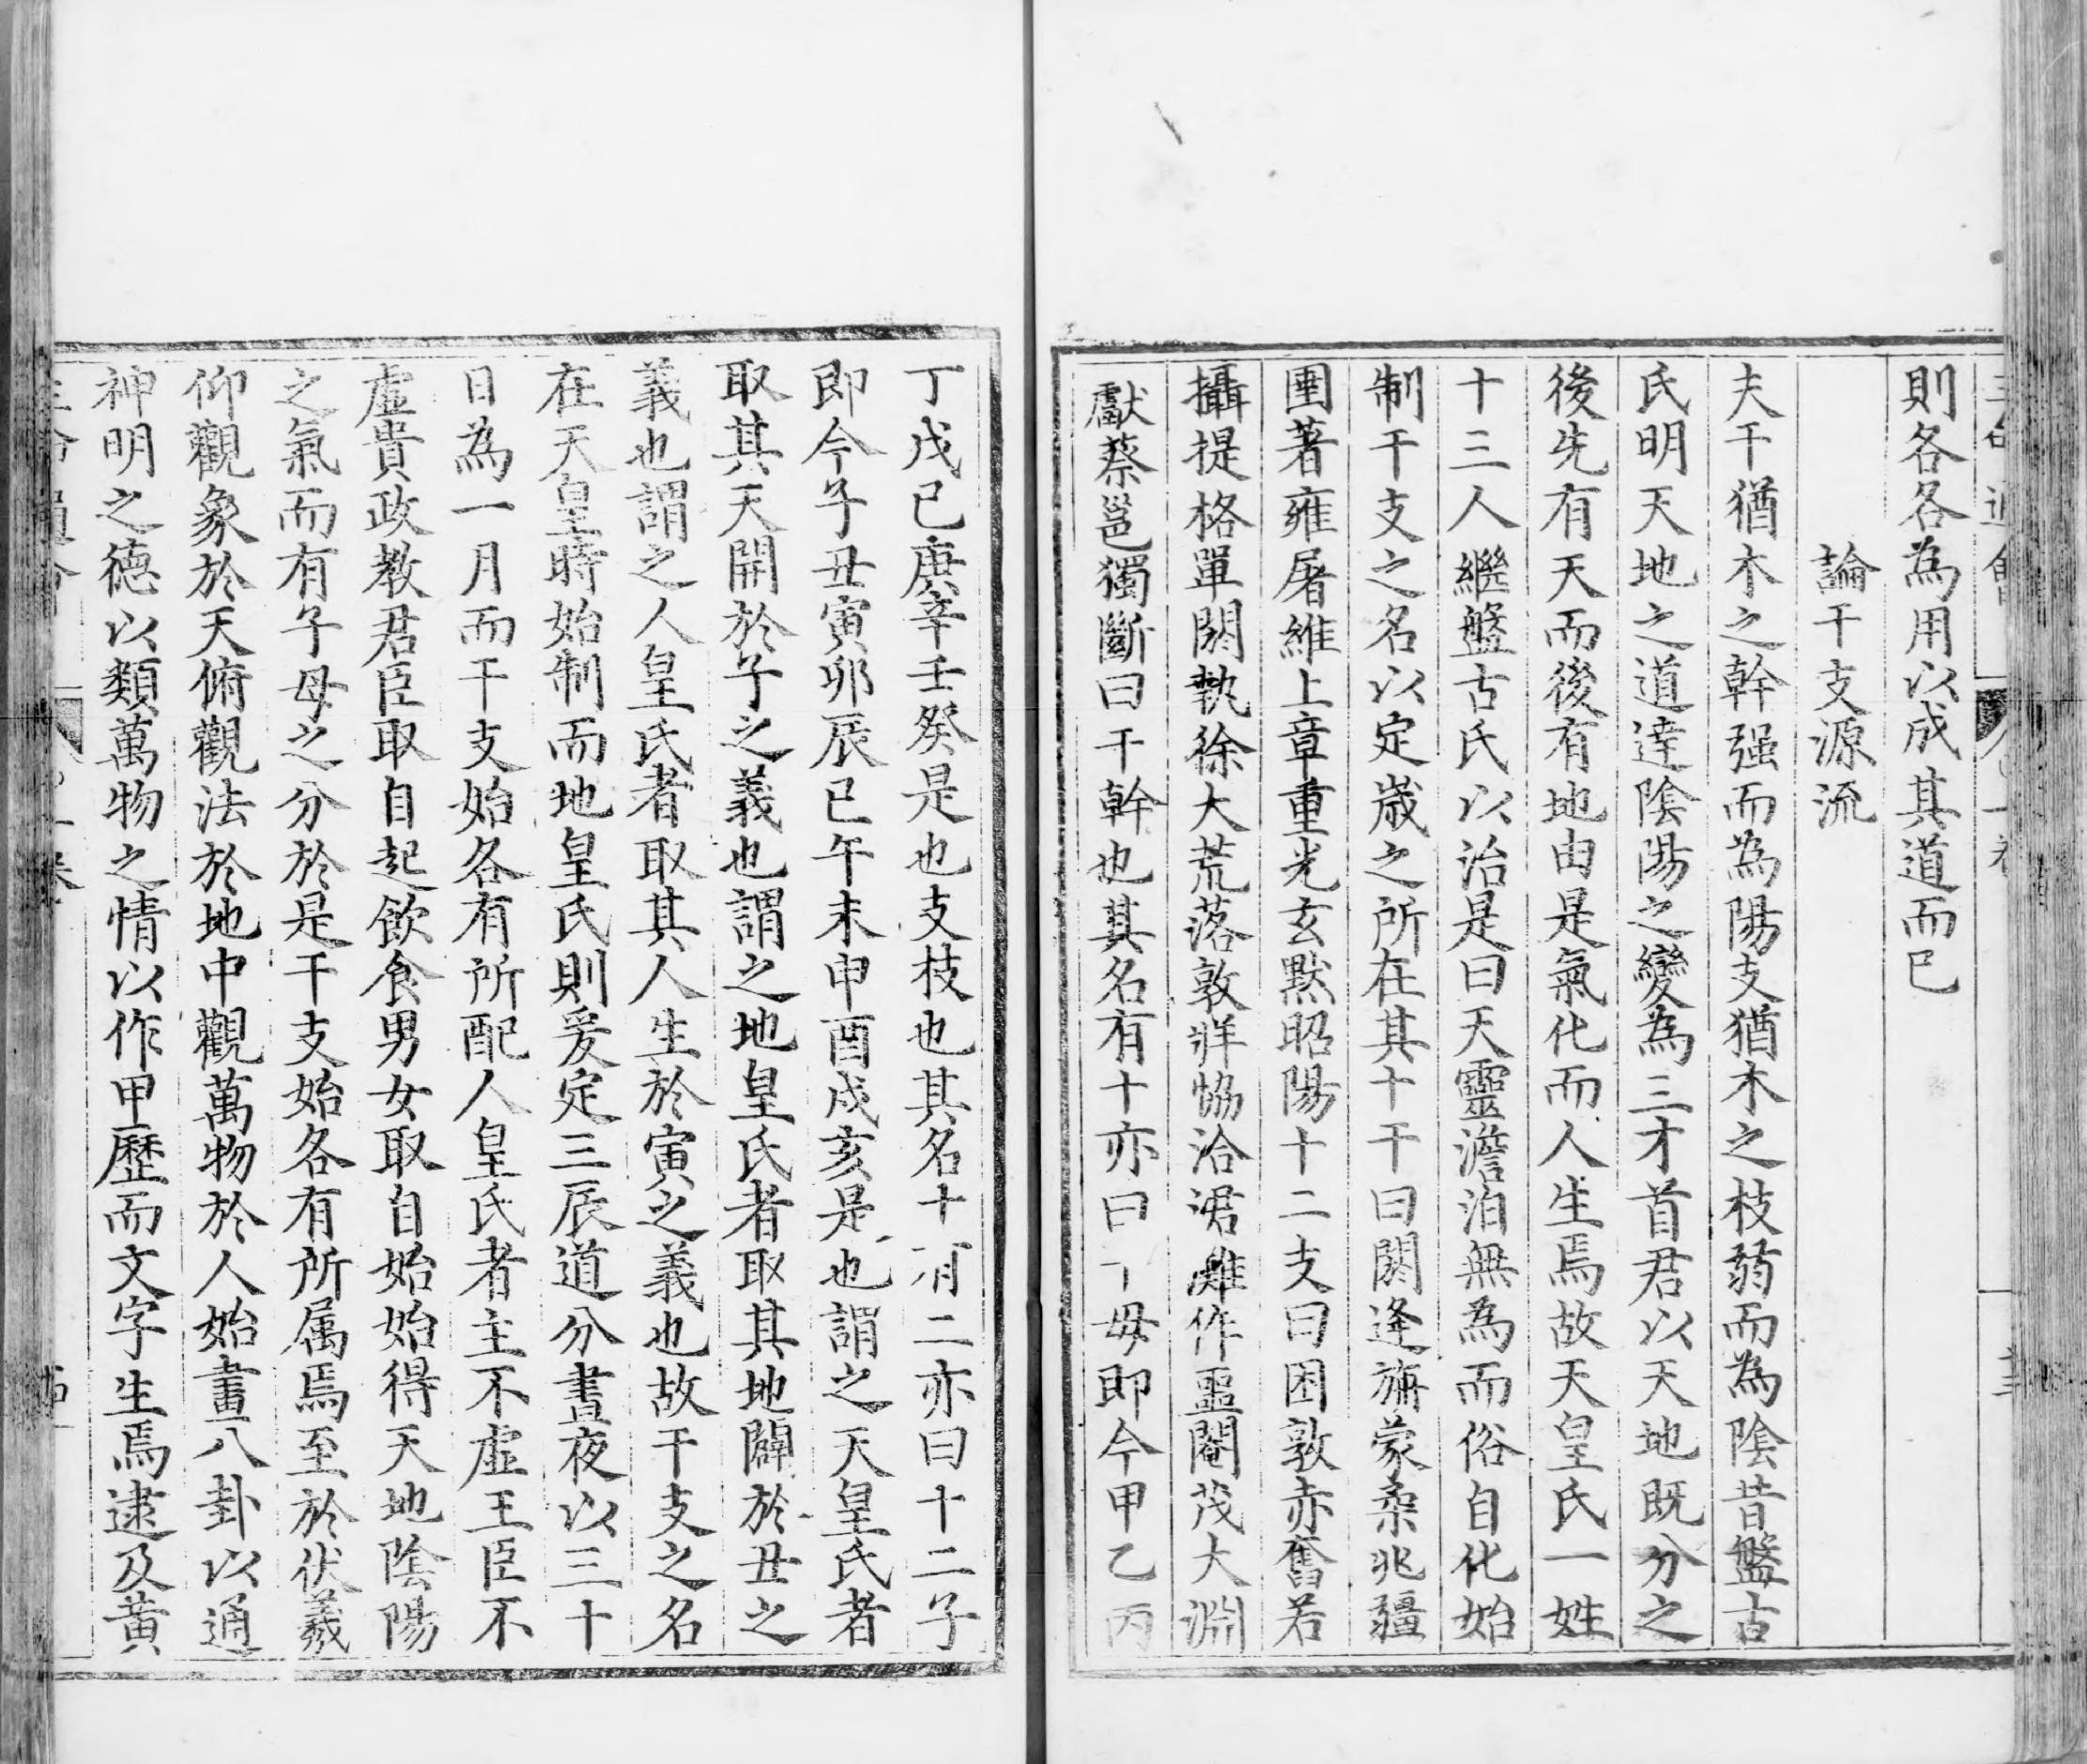 則各各為用以成其道而已
論干支源流
夫干猶木之幹强而為陽支猶木之枝弱而為陰昔盤古
氏明天地之道達陰陽之變為三才首君以天地既分之
後先有天而後有地由是氣化而人生焉故天皇氏一姓
十三人繼盤古氏以治是曰天靈澹泊無為而俗自化始
制干支之名以定歲之所在其十干曰閼逢旃蒙柔兆疆
圉著雍屠維上章重光玄默昭陽十二支曰困敦赤奮若
攝提格單閼執徐大荒落敦牂協洽涒灘作噩閹茂大淵
獻蔡邕獨斷曰干幹也其名有十亦曰十母即今甲乙丙
丁戊己庚辛壬癸是也支枝也其名十有二亦曰十二子
即今子丑寅卯辰巳午未申酉戌亥是也謂之天皇氏者
取其天開於子之義也謂之地皇氏者取其地闢於丑之
義也謂之人皇氏者取其人生於寅之義也故干支之名
在天皇時始制而地皇氏則爰定三辰道分晝夜以三十
日為一月而干支始各有所配人皇氏者主不虛王臣不
虛貴政教君臣取自起飲食男女取自始始得天地陰陽
之氣而有子母之分於是干支始各有所属焉至於伏羲
仰觀象於天俯觀法於地中觀萬物於人始畫八卦以通
神明之德以類萬物之情以作甲歷而文字生焉逮及黃